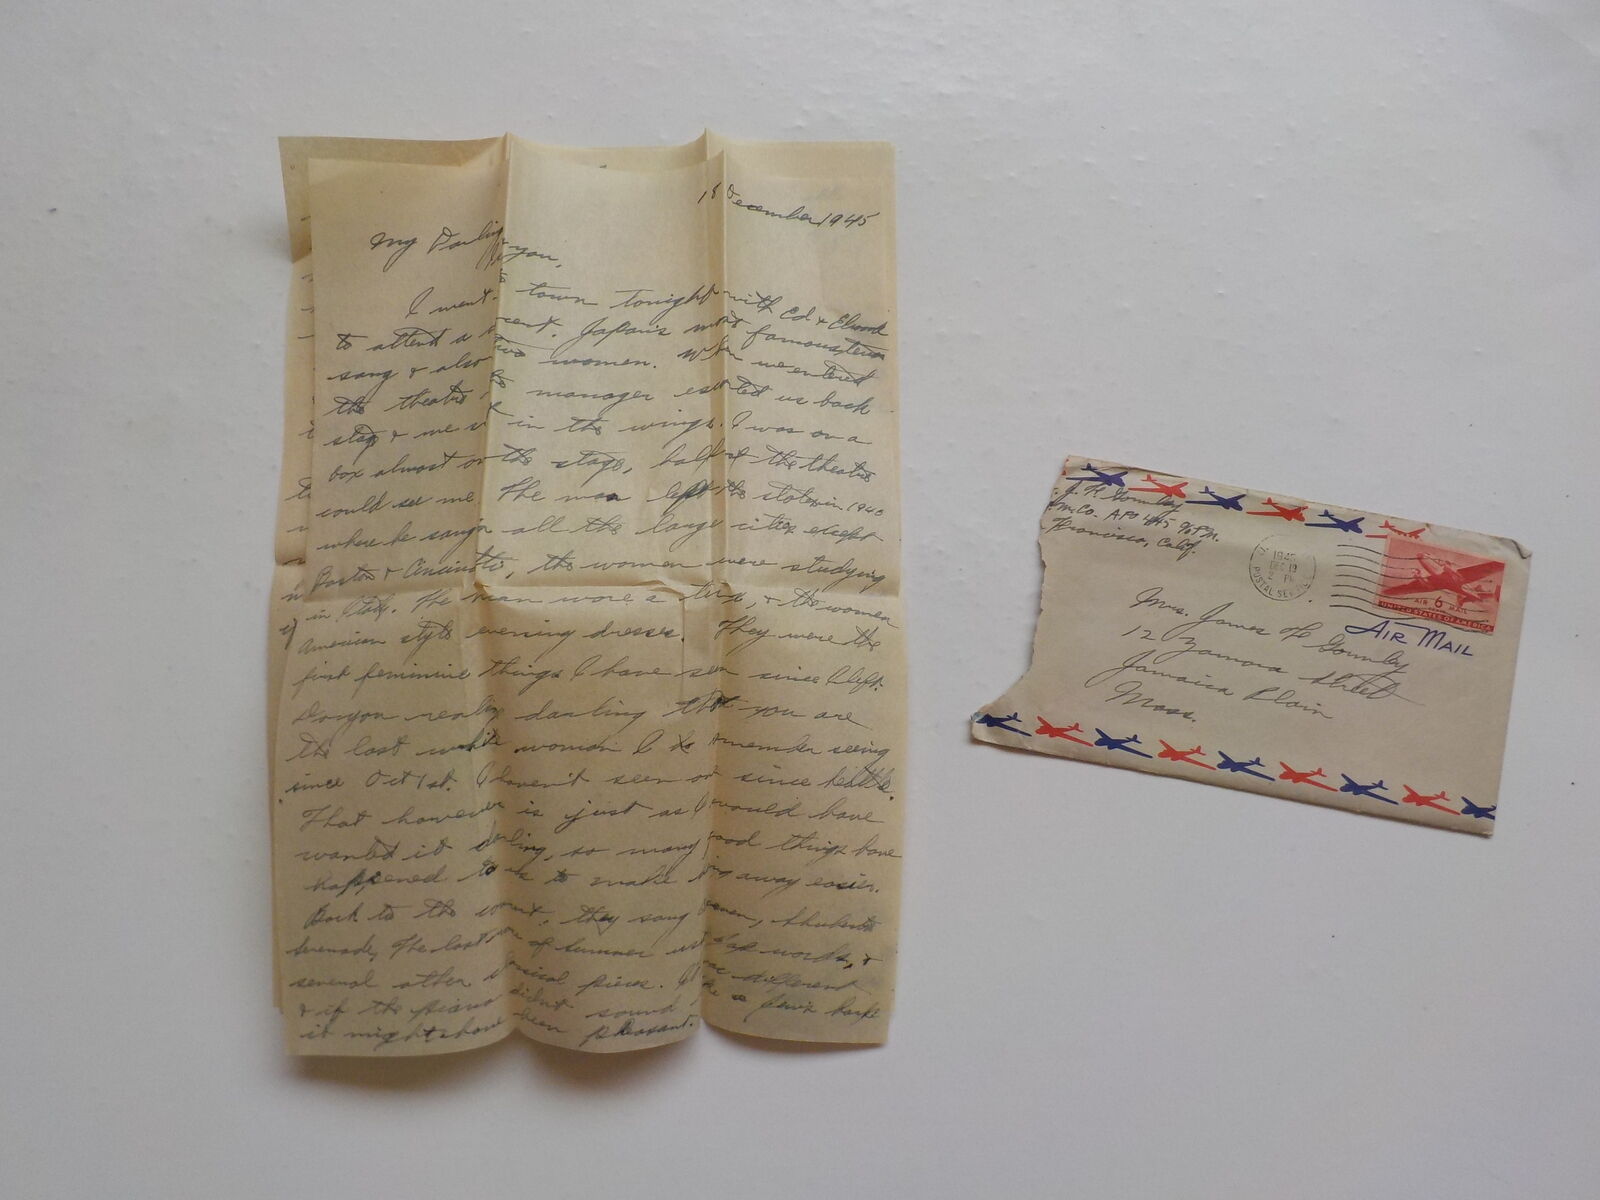 18 December 1945
My Darling
you,
I went to town tonight with Ed & Elwood
to attend a concert. Japan's most famous tenor
sang & also two women. When we entered
the theatre the manager escorted us back
stage & we sat in the wings. I was on a
box almost on the stage, half of the theatre
could see me. The man left the states in 1940
where he sang in all the large cities except
Boston & Cincinatti, the women were studying
in Italy. The man wore a tux, & the women
American style evening dresses. They were the
first feminine things I have seen since I left.
Do you realize darling that you are
the last white woman I do remember seeing
since Oct 1st. I haven't seen one since Seattle.
That however is just as I would have
wanted it darling, so many good things have
happened to us to make being away easier.
Back to the concert, they sang Shuberts
Serenade, The last rose of summer with Jap words, &
several other classical pieces. different
& if the piano didn't sound like a Jew's harp
it might have been pleasant.
J. H. Gormley
Co. APO 445 % P.M.
Francisco, Calif.
1945
DEC 19
2 PM
POSTAL SERVICE
AIR 6 MAIL
UNITED STATES OF AMERICA
AIR MAIL
Mrs. James H Gormley
12 Zamora Street
Jamaica Plain
Mass.